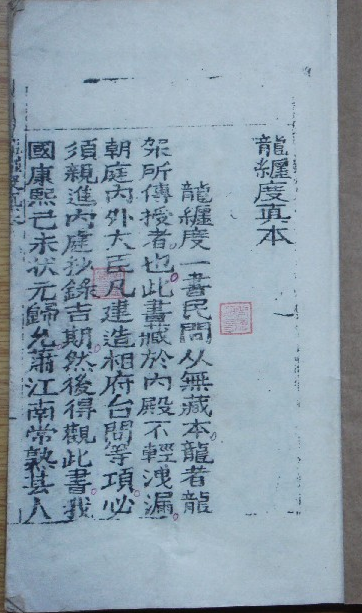 龍纏度真本
龍纏度一書民間从無藏本龍者龍
架所傳授者也此書臧於内殿不輕洩漏
朝庭内外大臣凡建造相府台閣等項必
須親進内庭抄錄吉期然後得觀此書我
國康熙己未状元歸允肅江南常熟县人